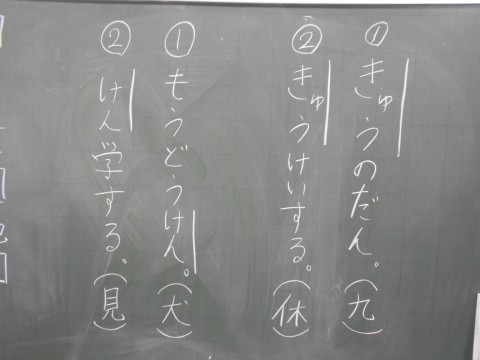 ① きゅうのだん。(九)
② きゅうけいする。(休)
① もうどうけん。(犬)
② けん学する。(見)